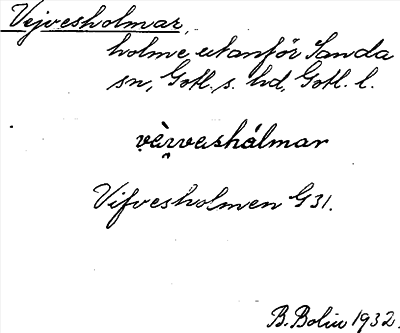 Vejvesholmar,
holme utanför Sanda
sn, Gotl. s. hd, Gotl. l.
vèrveshálmar
Vifvesholmen G31.
B. Bolin 1932.